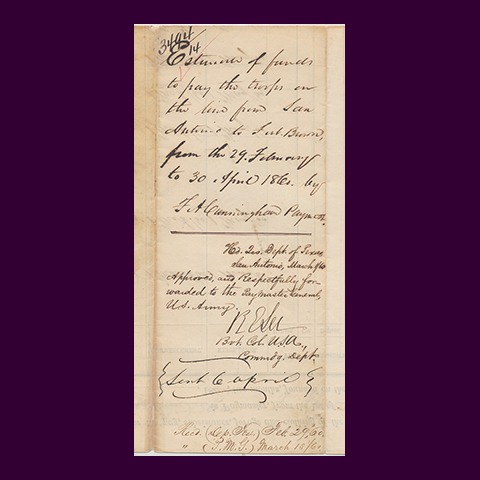 3494/14
Estimate of funds
to pay the troops on
the line from San
Antonio to Fort Brown,
from the 29. February
to 30 April 1860. by
T A Cunningham Paymr.
Hd. Qrs. Dept. of Texas
San Antonio, March /60
Approved, and Respectfully for-
warded to the Paymaster General,
U.S. Army.
R E Lee
Bvt. Col. U.S.A.,
Commdg. Dept.
Sent 6 April
Recd. (Dep. Tex.) Feb. 29/60.
" (P.M.G.) March 15/60.